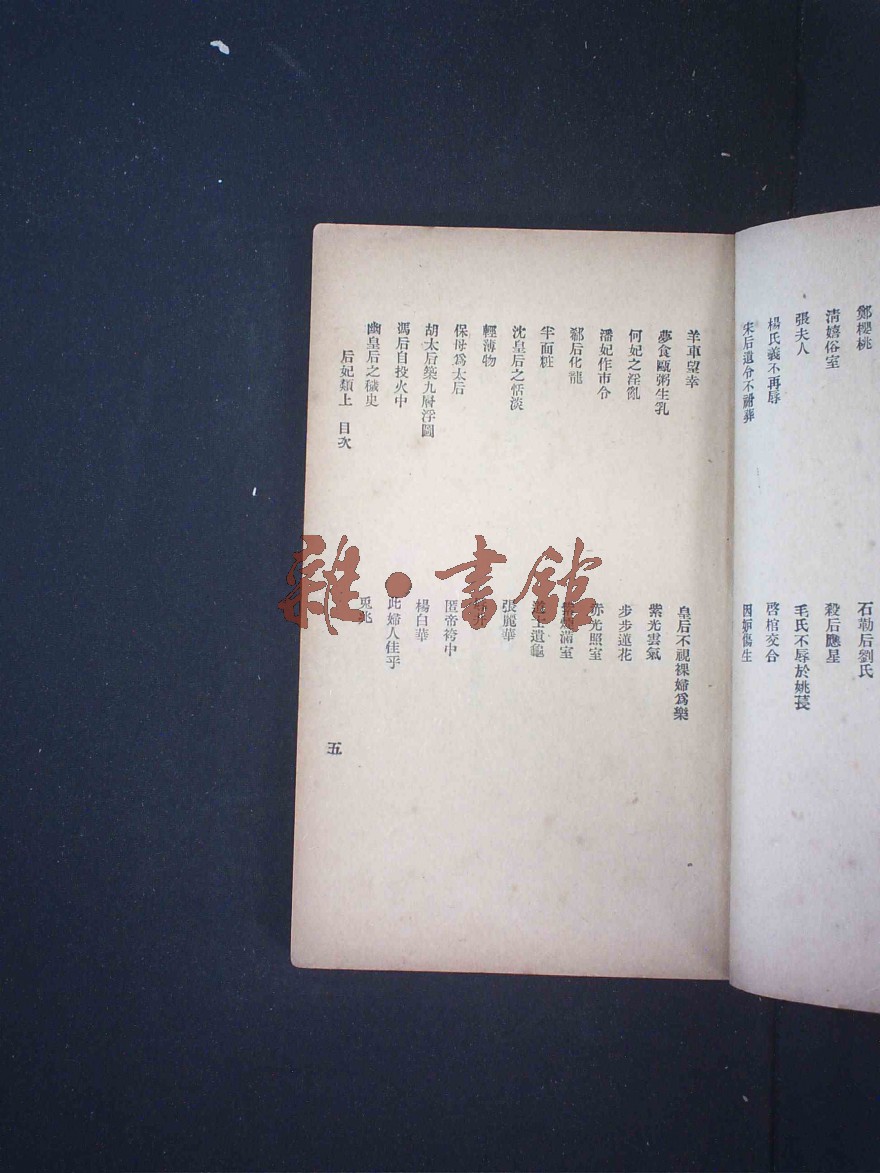 鄭櫻桃
石勒后劉氏
清嬉俗室
殺后應星
張夫人
毛氏不辱於姚萇
楊氏義不再辱
啓棺交合
宋后遺令不祔葬
因妬傷生
羊車望幸
皇后不視裸婦爲樂
夢食甌粥生乳
紫光雲氣
何妃之淫亂
步步蓮花
潘妃作市令
赤光照室
郗后化龍
滿室
半面粧
遺龜
沈皇后之恬淡
張麗華
輕薄物
保母爲太后
匿帝袴中
胡太后築九層浮圖
楊白華
馮后自投火中
此婦人佳乎
幽皇后之穢史
后妃類上 目次
五
雜·書館